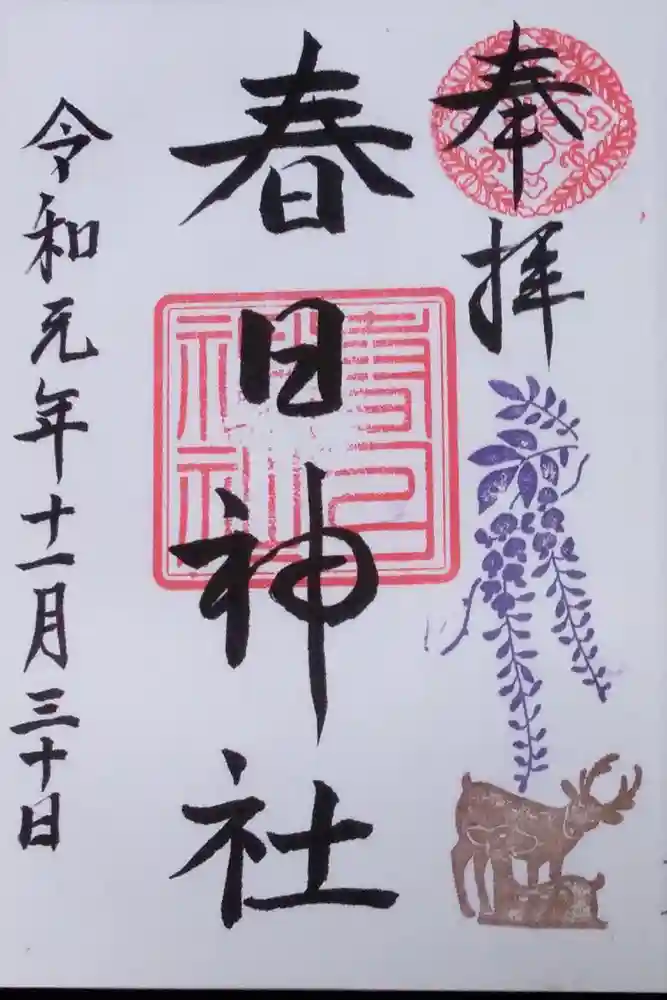 奉拝
春日神社
令和元年十一月三十日
春日
神社